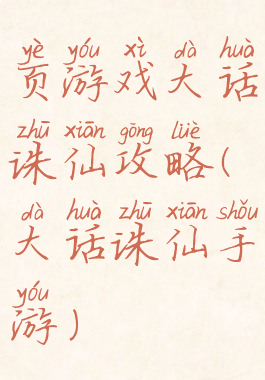 yè yóu xì dà huà
页游戏大话
zhū xiān gōng lüè
诛仙攻略(
dà huà zhū xiān shǒu
大话诛仙手
yóu
游)